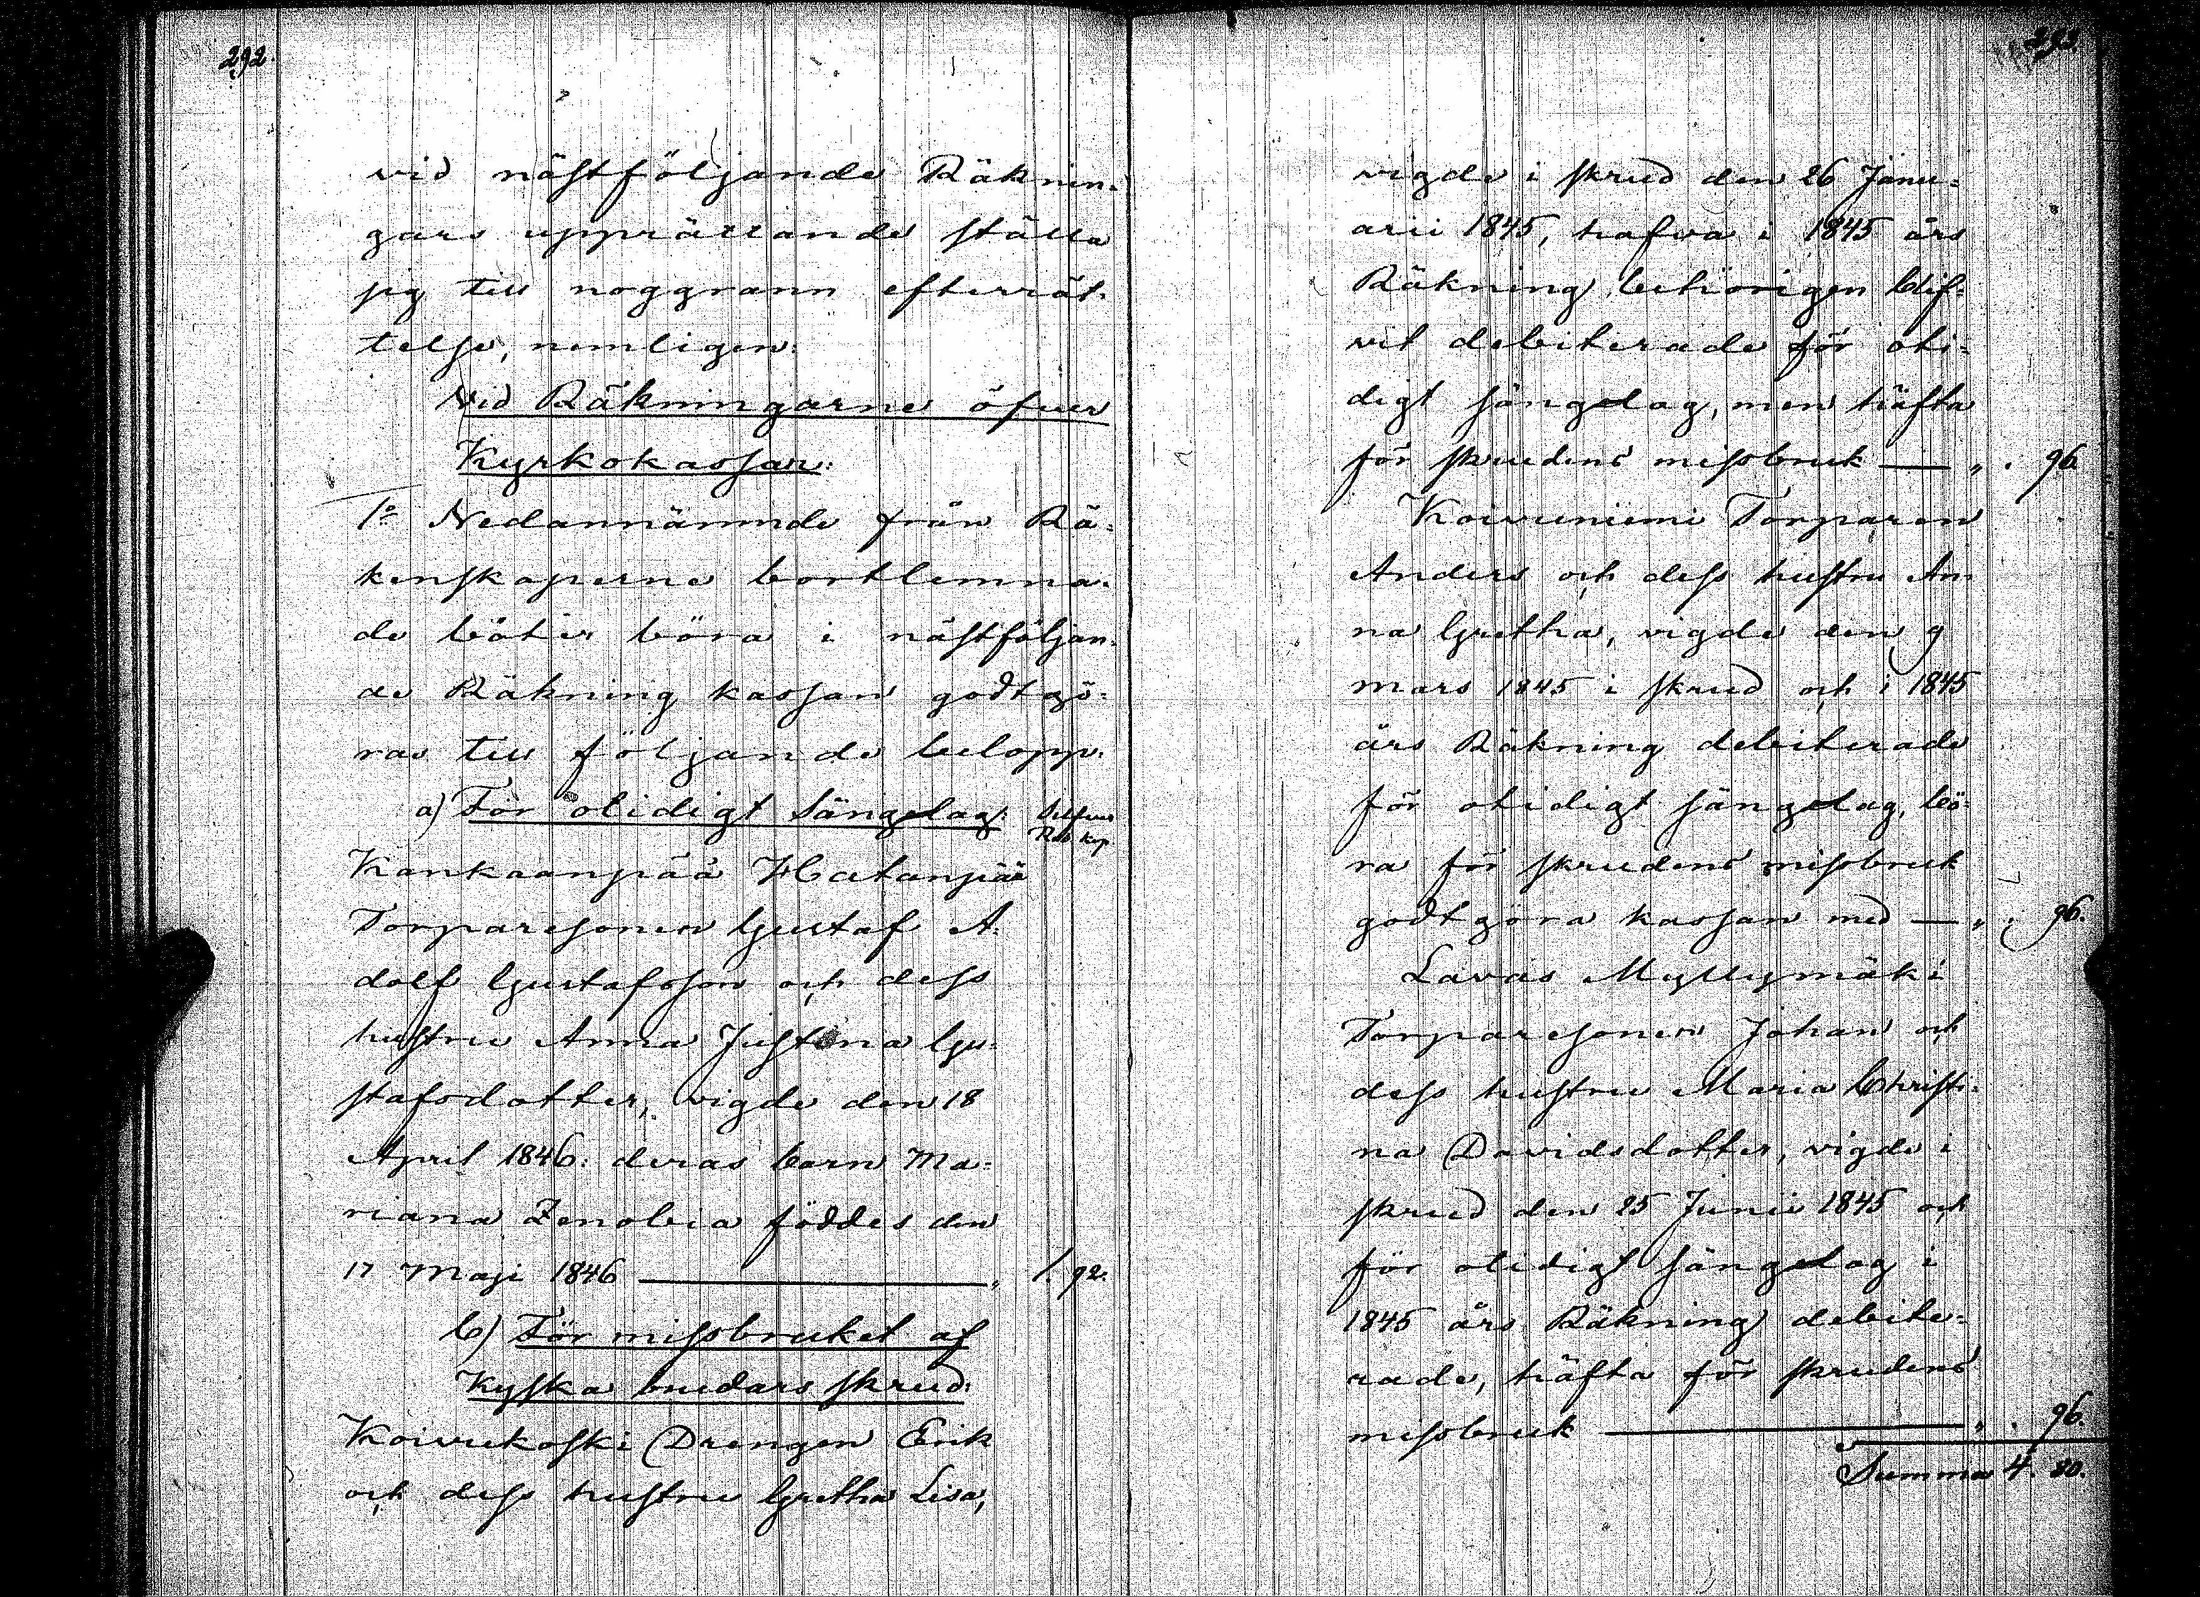 292.
vid nästföljande Räknin-
gars upprättande ställa
sig till noggrann efterrät-
telse, nemligen:
Vid Räkningarne öfver
Kyrkokassan:
1:o Nedannämnde från Rä-
kenskaperne bortlemna-
de böter böra i nästföljan-
de Räkning kassan godtgö-
ras till följande belopp:
a) För otidigt Sängelag: Silfver
Rub. kop
Kankaanpää Hatanpää
Torparesonen Gustaf A-
dolf Gustafsson och dess
hustru Anna Justina Gu-
stafsdotter, vigde den 18
April 1846: deras barn Ma-
riana Zenobia föddes den
17 Maji 1846 — „ 1. 92.
b) För missbruket af
Kyska brudars skrud:
Koivukoski Drengen Erik
och dess hustru Gretha Lisa,
293.
vigde i skrud den 26 Janu-
arii 1845, hafva i 1845 års
Räkning behörigen blif-
vit debiterade för oti-
digt sängelag, men häfta
för skrudens missbruk — „ . 96
Koivuniemi Torparen
Anders och dess hustru An-
na Gretha, vigde den 9
mars 1845 i skrud och i 1845
års Räkning debiterade
för otidigt sängelag, bö-
ra för skrudens missbruk
godtgöra kassan med — „ . 96.
Lavas Myllymäki
Torparesonen Johan och
dess hustru Maria Christi-
na Davidsdotter, vigde i
skrud den 25 Junii 1845 och
för otidigt sängelag i
1845 års Räkning debite-
rade, häfta för skrudens
missbruk — „ . 96.
Summa 4. 80.